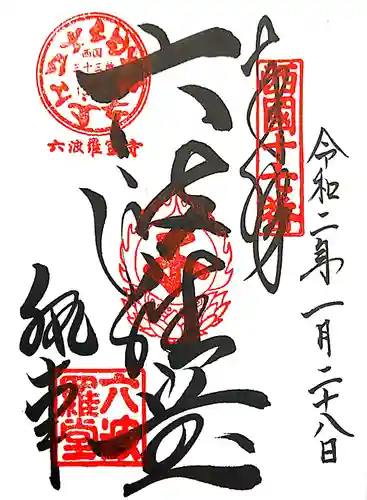 奉拝
西国十七番
令和二年一月二十八日
六波羅堂
西国
三十三
六波羅蜜寺
六波
羅堂